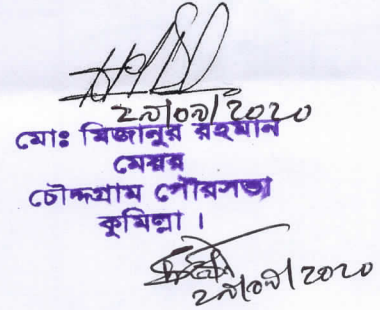 ২৯/০৯/২০২০
মোঃ মিজানুর রহমান
মেয়র
চৌদ্দগ্রাম পৌরসভা
কুমিল্লা ।
২৯/০৯/২০২০